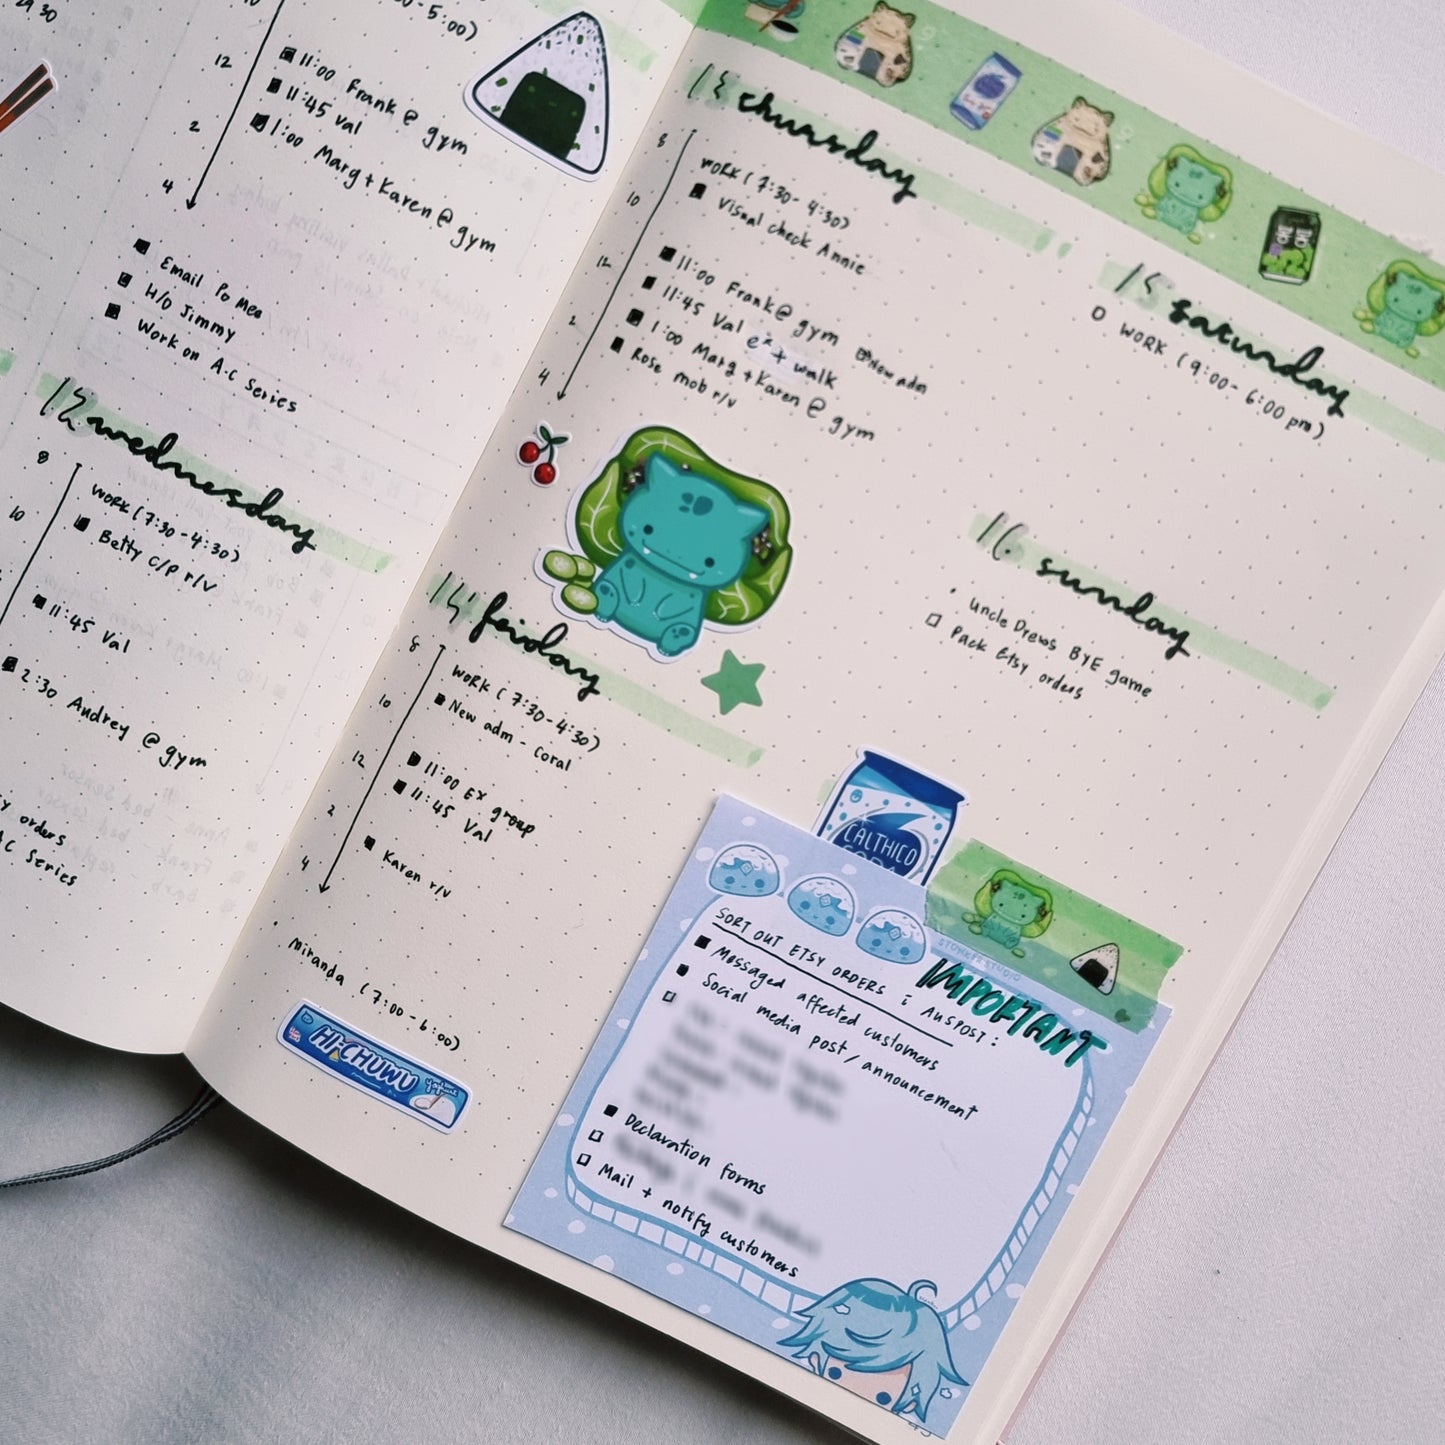 - 5:00)
12
2
4
11:00 Frank @ gym
11:45 Val
1:00 Marg + Karen @ gym
Email Po Mea
H/O Jimmy
Work on A.C Series
12 wednesday
8
10
WORK (7:30 - 4:30)
Betty C/P r/v
11:45 Val
2:30 Audrey @ gym
orders
C Series
13 thursday
8
10
12
2
4
WORK (7:30 - 4:30)
Visual check Annie
11:00 Frank @ gym
11:45 Val e² + walk
New adm
1:00 Marg + Karen @ gym
Rose mob r/v
14 friday
8
10
12
2
4
WORK (7:30 - 4:30)
New adm - Coral
11:00 Ex group
11:45 Val
Karen r/v
Miranda (7:00 - 6:00)
HI-CHUWU
15 saturday
WORK (9:00 - 6:00 pm)
16 sunday
Uncle Drews BYE game
Pack Etsy orders
CALTHICO
SODA
IMPORTANT
SORT OUT ETSY ORDERS & AUSPOST:
Messaged affected customers
Social media post / announcement
Declaration forms
Mail + notify customers